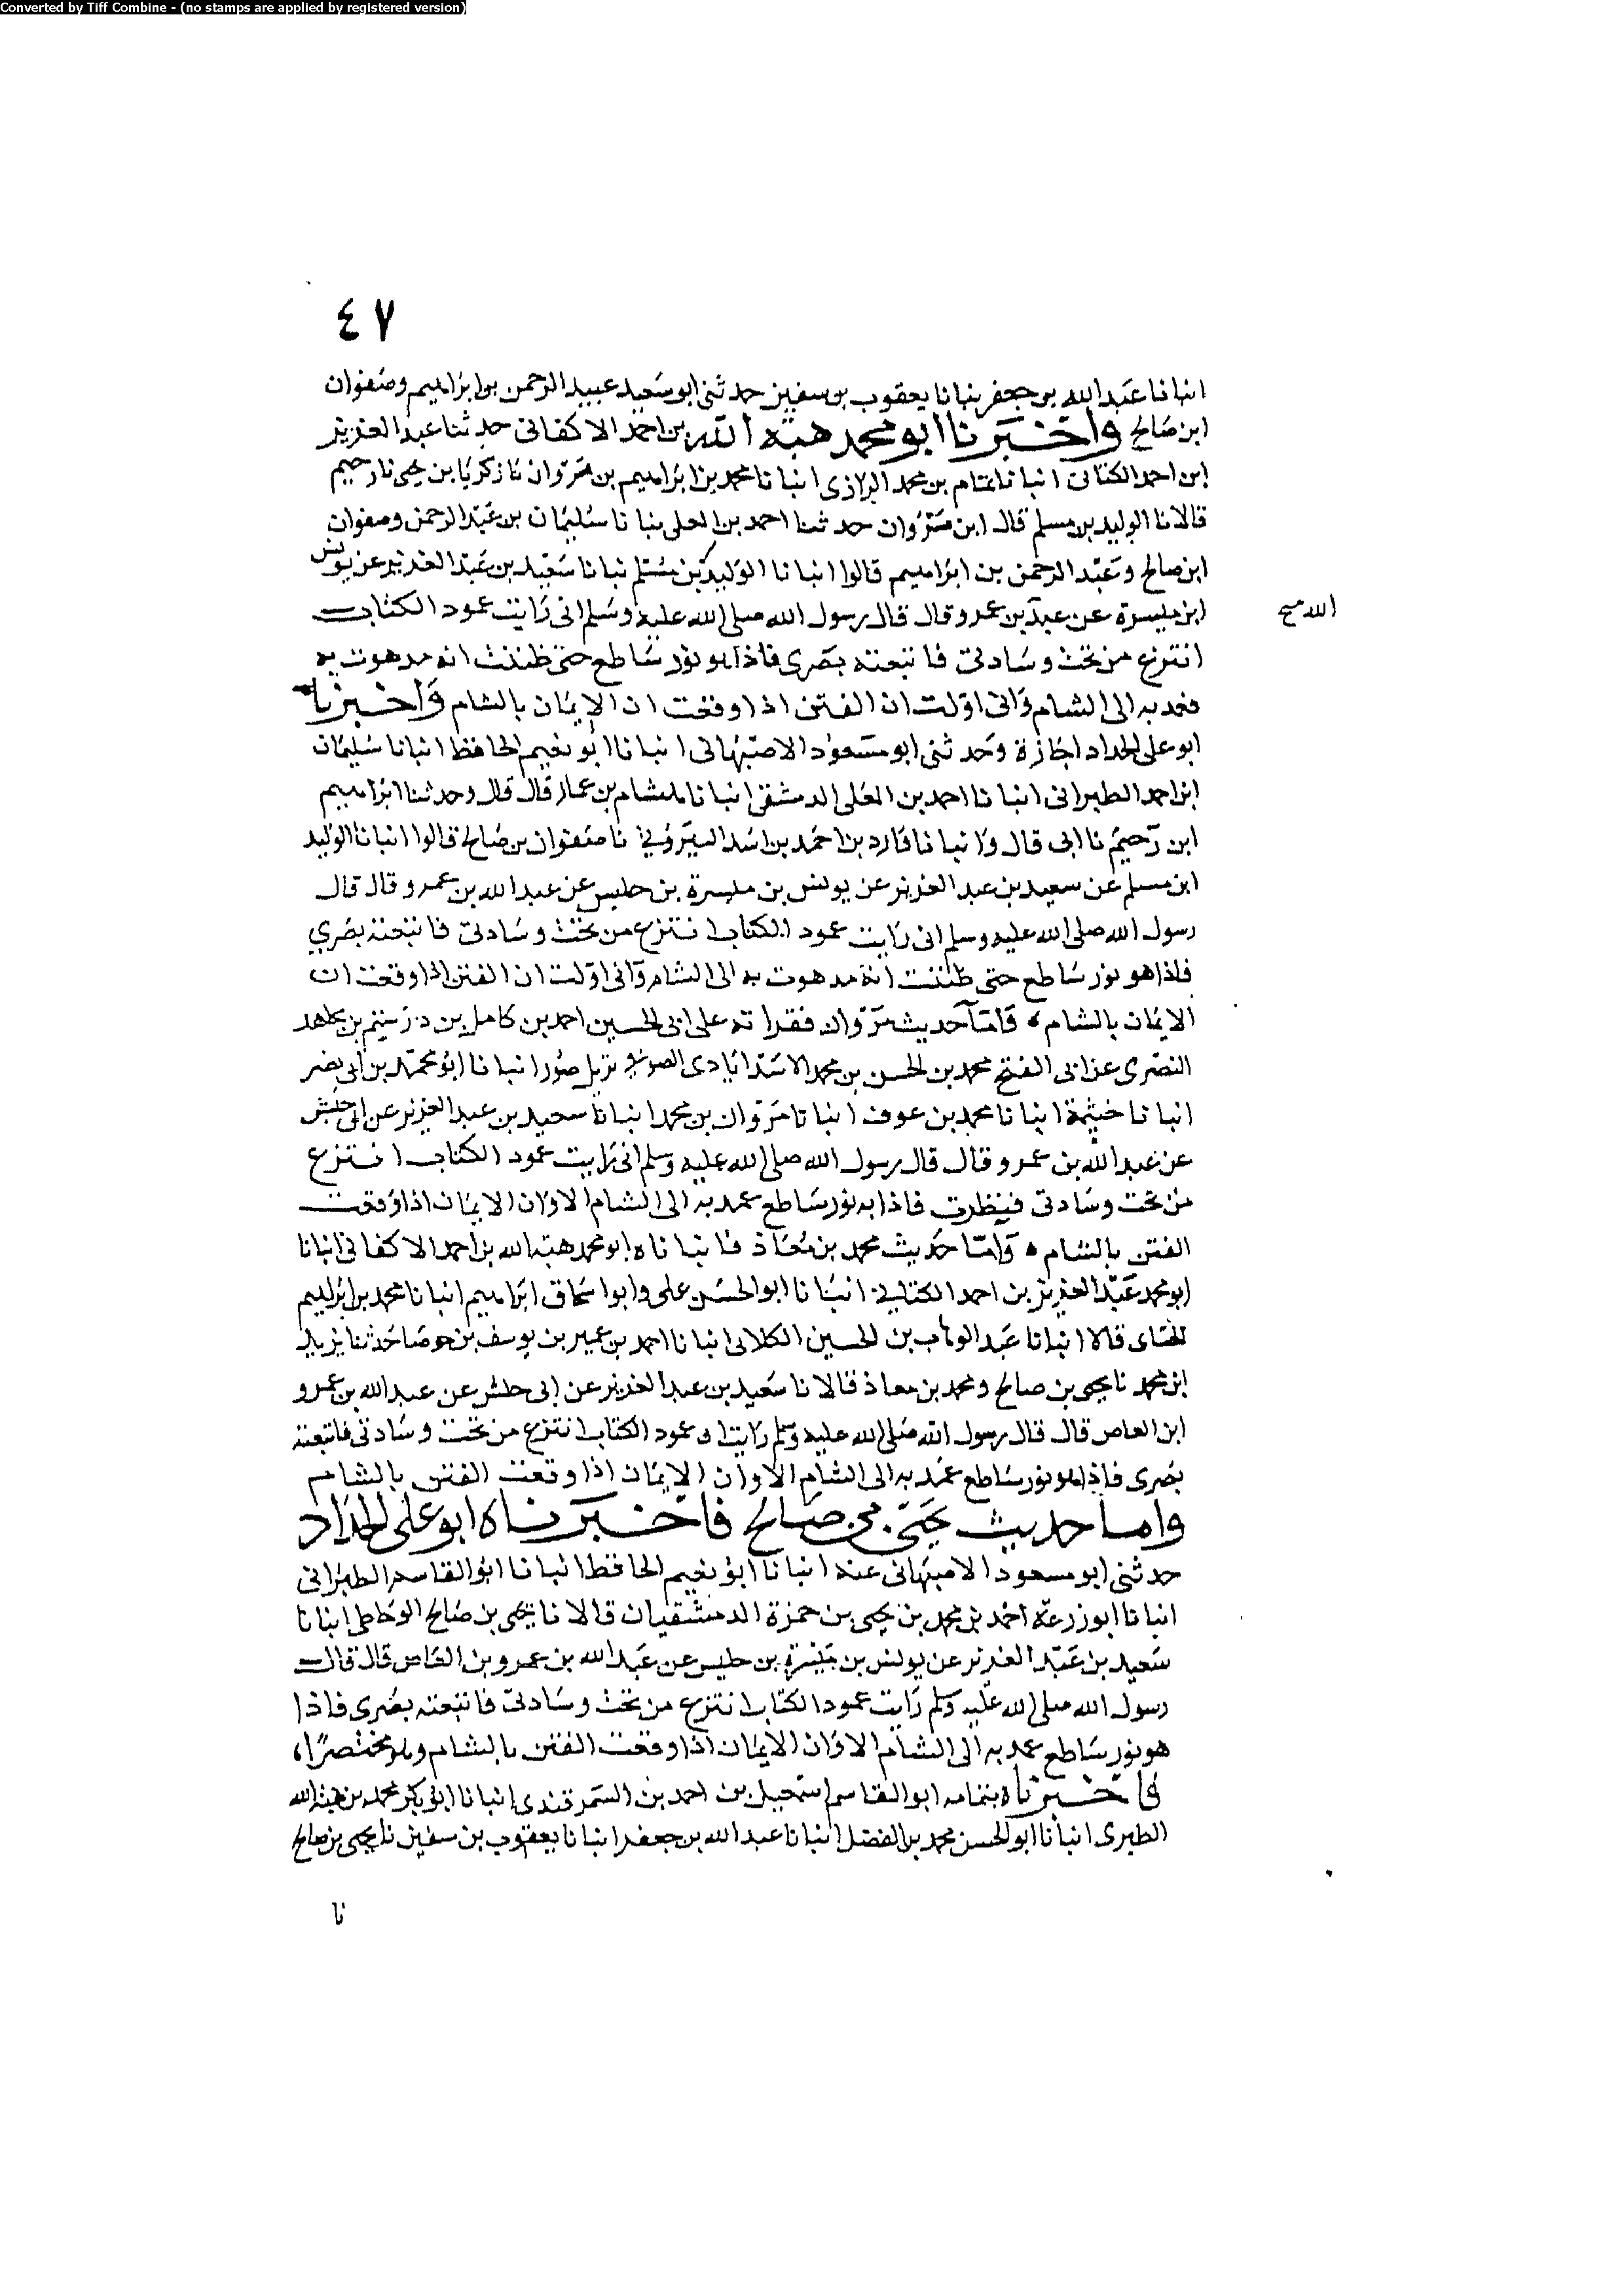 Converted by Tiff Combine - (no stamps are applied by registered version)
٤٧
انبانا عبد الله بن جعفر نبانا يعقوب بن سفين حدثنى ابو سعيد عبيد الرحمن بن ابراهيم وصفوان
ابن صالح واخبرنا ابو محمد هبة الله بن احمد الاكفانى حدثنا عبد العزيز
ابن احمد الكتانى انبانا تمام بن محمد الرازى انبانا محمد بن ابراهيم بن مروان نا زكريا بن يحيى نا رحيم
قالا نا الوليد بن مسلم قال ابن مروان حدثنا احمد بن المعلى نبانا سليمان بن عبد الرحمن وصفوان
ابن صالح وعبد الرحمن بن ابراهيم قالوا انبانا الوليد بن مسلم نبانا سعيد بن عبد العزيز عن يونس
ابن ميسرة عن عبد بن عمرو قال قال رسول الله صلى الله عليه وسلم انى رايت عمود الكتاب
الله صح
انتزع من تحت وسادتى فاتبعته بصرى فاذا هو نور ساطع حتى ظننت انه مد هوت به
فعمد به الى الشام وانى اولت ان الفتن اذا وقعت ان الايمان بالشام واخبرنا
ابو على الحداد اجازة وحدثنى ابو مسعود الاصبهانى انبانا ابو نعيم الحافظ انبانا سليمان
ابن احمد الطبرانى انبانا احمد بن المعلى الدمشقى انبانا هشام بن عمار قال قال وحدثنا ابراهيم
ابن رحيم نا ابى قال وانبانا وارد بن احمد بن اسد البيروتى نا صفوان بن صالح قالوا انبانا الوليد
ابن مسلم عن سعيد بن عبد العزيز عن يونس بن ميسرة بن حلبس عن عبد الله بن عمرو قال قال
رسول الله صلى الله عليه وسلم انى رايت عمود الكتاب انتزع من تحت وسادتى فاتبعته بصرى
فاذا هو نور ساطع حتى ظننت انه مد هوت به الى الشام وانى اولت ان الفتن اذا وقعت ان
الايمان بالشام ٥ واما حديث مروان فقراته على ابى الحسين احمد بن كامل بن مجاهد
النصرى عن ابى الفتح محمد بن الحسن بن محمد الاسداباذى الصوفى نزيل صور انبانا ابو محمد بن ابى نصر
انبانا خيثمة انبانا محمد بن عوف انبانا مروان بن محمد انبانا سعيد بن عبد العزيز عن ابى حلبس
عن عبد الله بن عمرو قال قال رسول الله صلى الله عليه وسلم انى رايت عمود الكتاب انتزع
من تحت وسادتى فنظرت فاذا به نور ساطع عمد به الى الشام الا وان الايمان اذا وقعت
الفتن بالشام ٥ واما حديث محمد بن معاذ فانباناه ابو محمد هبة الله بن احمد الاكفانى انبانا
ابو محمد عبد العزيز بن احمد الكتانى انبانا ابو الحسن على وابو اسحاق ابراهيم انبانا محمد بن ابراهيم
قالا انبانا عبد الوهاب بن الحسين الكلابى انبانا احمد بن عمير بن يوسف بن حوصا حدثنا يزيد
ابن محمد نا يحيى بن صالح ومحمد بن معاذ قالا نا سعيد بن عبد العزيز عن ابى حلبس عن عبد الله بن عمرو
ابن العاص قال قال رسول الله صلى الله عليه وسلم رايت عمود الكتاب انتزع من تحت وسادتى فاتبعته
بصرى فاذا هو نور ساطع عمد به الى الشام الا وان الايمان اذا وقعت الفتن بالشام
واما حديث يحيى بن صالح فاخبرناه ابو على الحداد
حدثنى ابو مسعود الاصبهانى عنه انبانا ابو نعيم الحافظ انبانا ابو القاسم الطبرانى
انبانا ابو زرعة احمد بن محمد بن يحيى بن حمزة الدمشقيان قالا نا يحيى بن صالح الوحاظى انبانا
سعيد بن عبد العزيز عن يونس بن ميسرة بن حلبس عن عبد الله بن عمرو بن العاص قال قال
رسول الله صلى الله عليه وسلم رايت عمود الكتاب انتزع من تحت وسادتى فاتبعته بصرى فاذا
هو نور ساطع عمد به الى الشام الا وان الايمان اذا وقعت الفتن بالشام وهو مختصرا
فاخبرناه بتمامه ابو القاسم اسمعيل بن احمد بن السمرقندى انبانا ابو بكر محمد بن هبة الله
الطبرى انبانا ابو الحسن محمد بن الفضل انبانا عبد الله بن جعفر انبانا يعقوب بن سفين نا يحيى بن صالح
نا